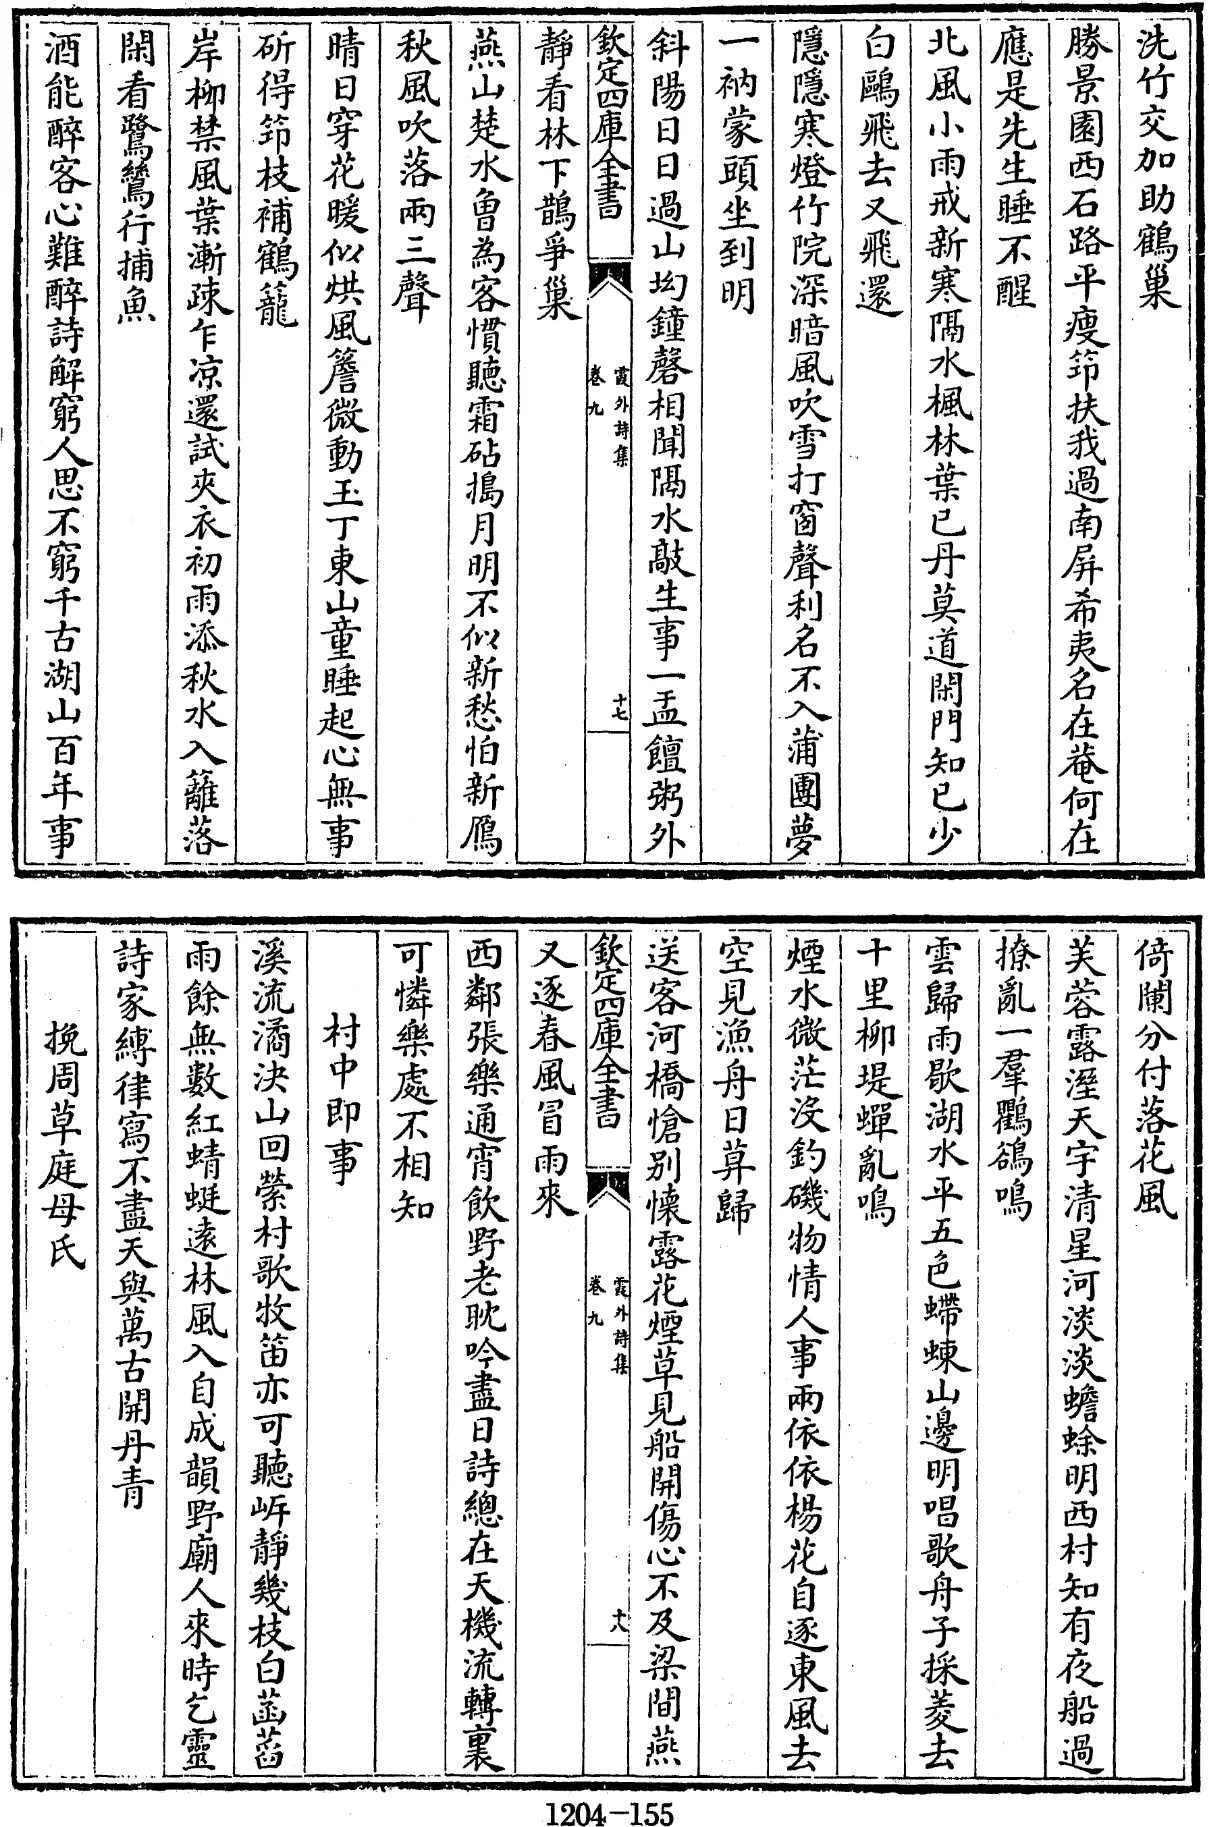 洗竹交加助鶴巢
勝景園西石路平瘦笻扶我過南屏希夷名在菴何在
應是先生睡不醒
北風小雨戒新寒隔水楓林葉已丹莫道閑門知已少
白鷗飛去又飛還
隱隱寒燈竹院深暗風吹雪打窗聲利名不入蒲團夢
一衲蒙頭坐到明
斜陽日日過山坳鐘磬相聞隔水敲生事一盂饘粥外
欽定四庫全書
霞外詩集
卷九
十七
靜看林下鵲爭巢
燕山楚水曾為客慣聽霜砧搗月明不似新愁怕新鴈
秋風吹落兩三聲
晴日穿花暖似烘風簷微動玉丁東山童睡起心無事
斫得笻枝補鶴籠
岸柳禁風葉漸疎乍凉還試夾衣初雨添秋水入籬落
閑看鷺鷥行捕魚
酒能醉客心難醉詩解窮人思不窮千古湖山百年事
倚闌分付落花風
芙蓉露溼天宇清星河淡淡蟾蜍明西村知有夜船過
撩亂一羣鸜鵒鳴
雲歸雨歇湖水平五色螮蝀山邊明唱歌舟子採菱去
十里柳堤蟬亂鳴
煙水微茫沒釣磯物情人事兩依依楊花自逐東風去
空見漁舟日暮歸
送客河橋愴別懷露花煙草見船開傷心不及梁間燕
欽定四庫全書
霞外詩集
卷九
十八
又逐春風冒雨來
西鄰張樂通宵飲野老耽吟盡日詩總在天機流轉裏
可憐樂處不相知
村中即事
溪流潏泬山回縈村歌牧笛亦可聽㟁靜幾枝白菡萏
雨餘無數紅蜻蜓遠林風入自成韻野廟人來時乞靈
詩家縛律寫不盡天與萬古開丹青
挽周草庭母氏
1204-155